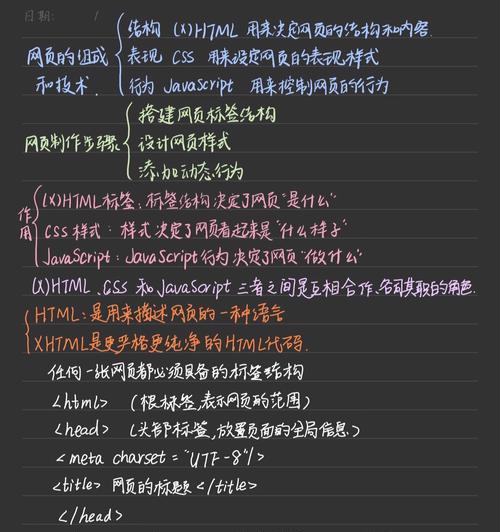 日期: /
结构 (X)HTML 用来决定网页的结构和内容
网页的组成 表现 CSS 用来设定网页的表现样式
和技术. 行为 JavaScript 用来控制网页的行为
搭建网页标签结构
网页制作步骤 设计网页样式
添加动态行为
(X)HTML标签、标签结构决定了网页"是什么"
作用 CSS 样式：样式决定了网页看起来是"什么样子"
JavaScript：JavaScript行为决定了网页"做什么"
(X)HTML、CSS 和JavaScript 三者之间是互相合作、各司其职的角色.
HTML：是用来描述网页的一种语言
XHTML是更严格更纯净的HTML代码.
任何一张网页都必须具备的标签结构
<html> (根标签,表示网页的范围)
<head> (头部标签,放置页面的全局信息.)
<meta charset="UTF-8"/>
<title> 网页的标题 </title>
</head>